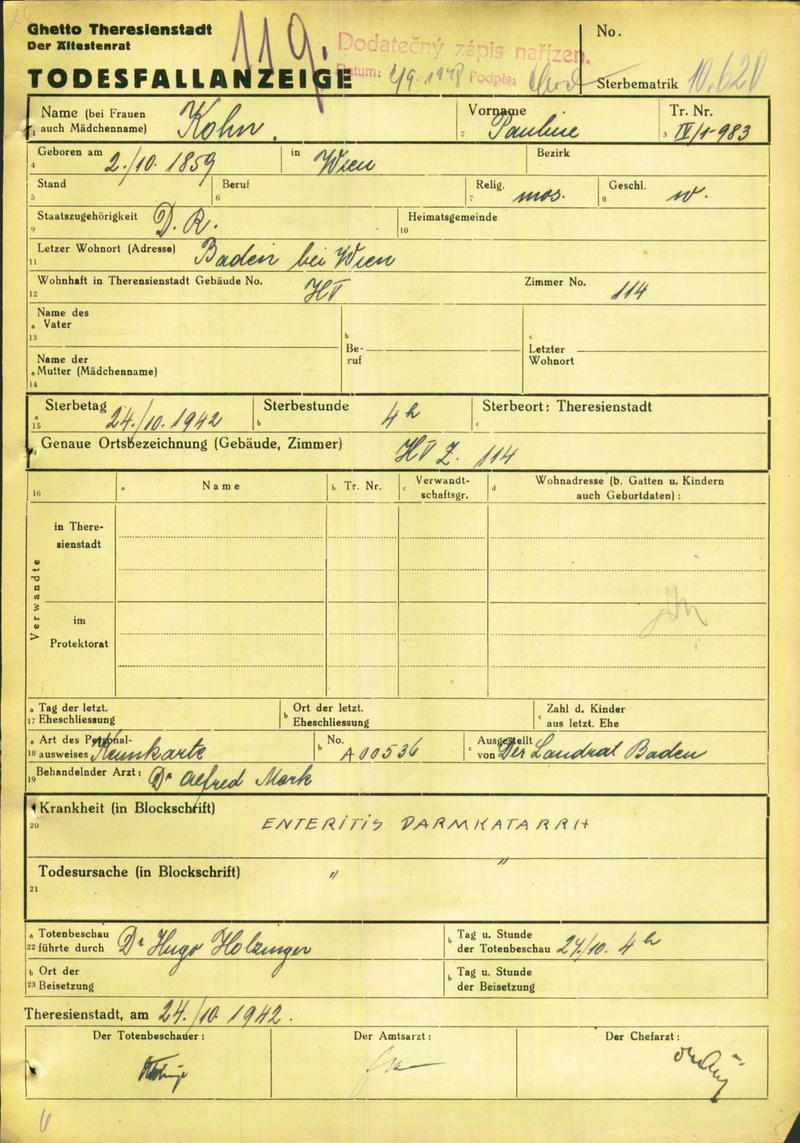 Ghetto Theresienstadt
Der Ältestenrat
TODESFALLANZEIGE
119.
Dodatečný zápis nařízen.
Datum: 4/9. 1948 Podpis:
No.
Sterbematrik 10.620
Name (bei Frauen auch Mädchenname) Kohn.
1
Vorname Pauline
2
Tr. Nr. IV/1-983
3
Geboren am 2./10. 1859
4
in Wien
Bezirk
Stand
5
Beruf
6
Relig. mos.
7
Geschl. w.
8
Staatszugehörigkeit D. R.
9
Heimatsgemeinde
10
Letzer Wohnort (Adresse) Baden bei Wien
11
Wohnhaft in Therensienstadt Gebäude No. HV
12
Zimmer No. 114
Name des
a Vater
13
b
Be-
ruf
c
Letzter
Wohnort
Name der
a Mutter (Mädchenname)
14
Sterbetag 24./10. 1942
a
15
Sterbestunde 4h
b
Sterbeort: Theresienstadt
c
Genaue Ortsbezeichnung (Gebäude, Zimmer) HV Z. 114
16
a Name
b Tr. Nr.
c Verwandt-
schaftsgr.
d Wohnadresse (b. Gatten u. Kindern
auch Geburtdaten) :
Verwandte
in There-
sienstadt
im
Protektorat
a Tag der letzt.
17 Eheschliessung
b Ort der letzt.
Eheschliessung
c Zahl d. Kinder
aus letzt. Ehe
a Art des Personal-
18 ausweises Kennkarte
b No. A 00536
c Ausgestellt
von Der Landrat Baden
Behandelnder Arzt: Dr Alfred Mark
19
Krankheit (in Blockschrift)
20
ENTERITIS DARMKATARRH
Todesursache (in Blockschrift) " "
21
a Totenbeschau
22 führte durch Dr Hugo Holzinger
b Tag u. Stunde
der Totenbeschau 24/10. 4h
b Ort der
23 Beisetzung
b Tag u. Stunde
der Beisetzung
Theresienstadt, am 24./10. 1942.
Der Totenbeschauer:
Der Amtsarzt:
Der Chefarzt: